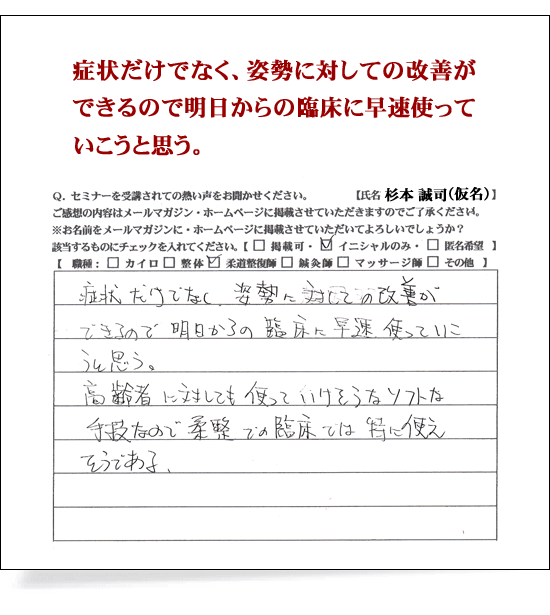 症状だけでなく、姿勢に対しての改善が
できるので明日からの臨床に早速使って
いこうと思う。
Q. セミナーを受講されての熱い声をお聞かせください。 【氏名 杉本 誠司(仮名)】
ご感想の内容はメールマガジン・ホームページに掲載させていただきますのでご了承ください。
※お名前をメールマガジンに・ホームページに掲載させていただいてよろしいでしょうか？
該当するものにチェックを入れてください。【 □ 掲載可・ ☑ イニシャルのみ・ □ 匿名希望 】
【 職種： □ カイロ □ 整体 ☑ 柔道整復師 □ 鍼灸師 □ マッサージ師 □ その他 】
症状だけでなく、姿勢に対しての改善が
できるので明日からの臨床に早速使っていこ
うと思う。
高齢者に対しても使っていけそうなソフトな
手技なので柔整での臨床では特に使え
そうである、